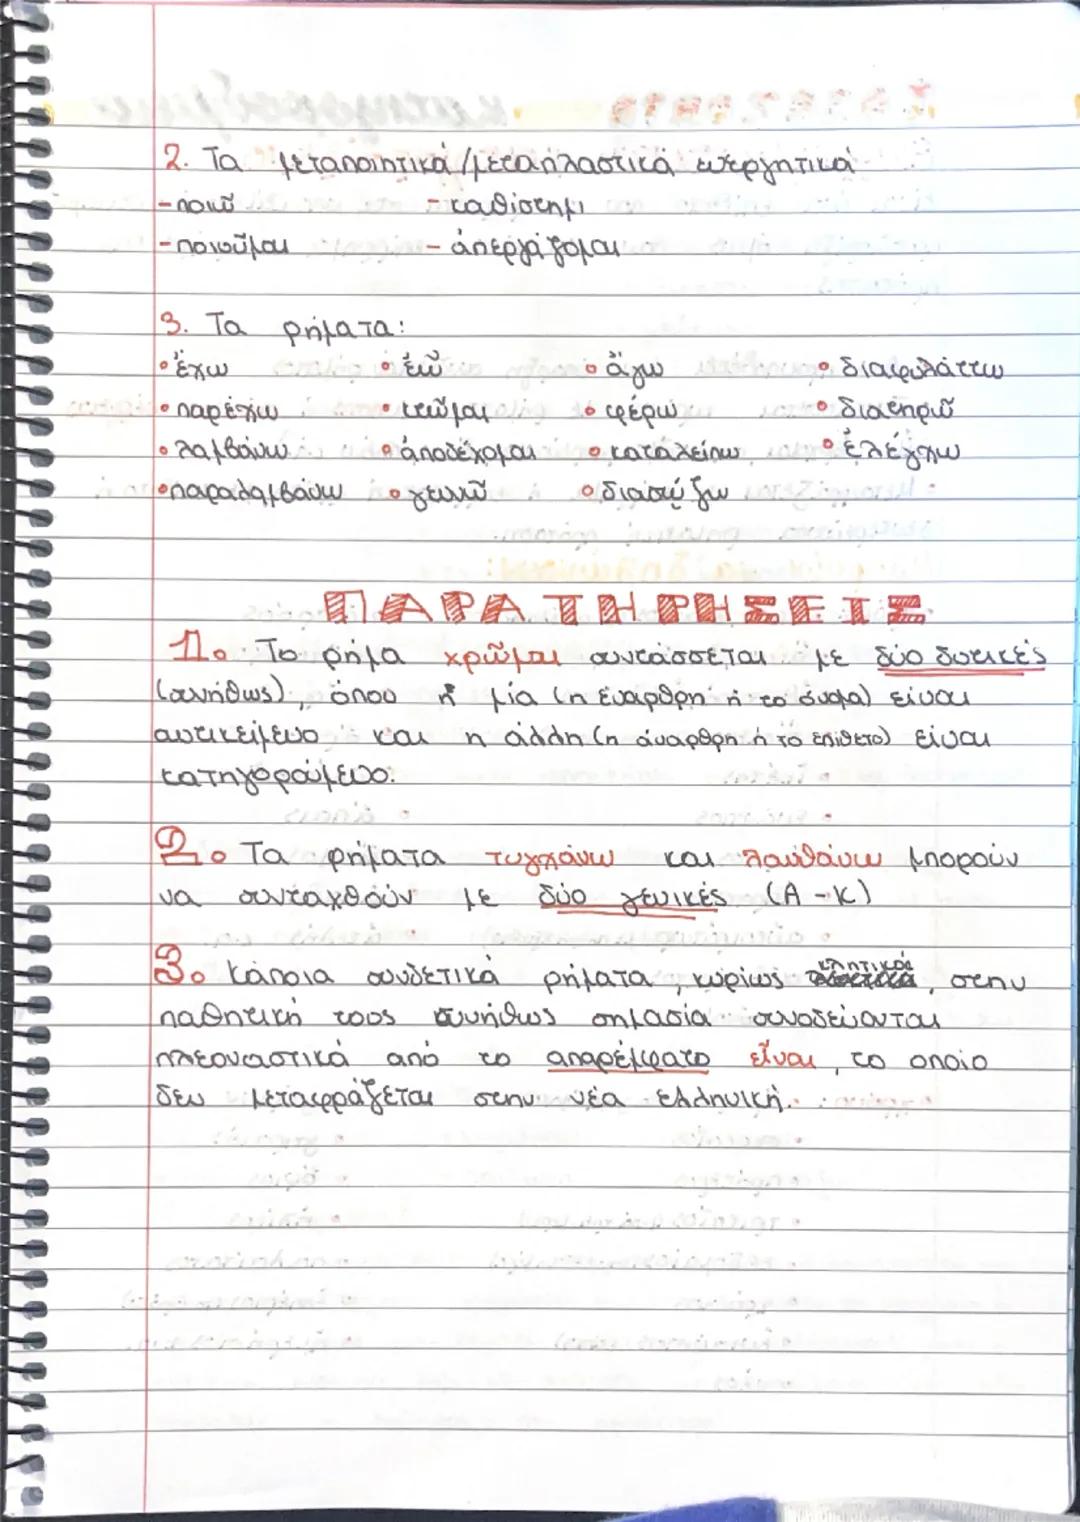 2. Τα μεταποιητικά/μεταπλαστικά ενεργητικά
-ποιῶ -καθίστημι
-ποιοῦμαι -ἀπεργάζομαι
3. Τα ρήματα:
•ἔχω •ἐῶ •ἄγω •διαφυλάττω
•παρέχω •κτῶμαι •φέρω •διατηρῶ
•λαμβάνω •ἀποδέχομαι •καταλείπω •ἐλέγχω
•παραλαμβάνω •γεννῶ •διασῴζω
ΠΑΡΑΤΗΡΗΣΕΙΣ
1. Το ρήμα χρῶμαι συντάσσεται με δύο δοτικές
(συνήθως), όπου η μία (η έναρθρη ή το όνομα) είναι
αντικείμενο και η άλλη (η άναρθρη ή το επίθετο) είναι
κατηγορούμενο.
2. Τα ρήματα τυγχάνω και λανθάνω μπορούν
να συνταχθούν με δύο γενικές (Α-Κ)
3. Κάποια συνδετικά ρήματα, κυρίως κλητικά, στην
παθητική τους συνήθως σημασία συνοδεύονται
πλεοναστικά από το απαρέμφατο εἶναι, το οποίο
δεν μεταφράζεται στην νέα ελληνική.